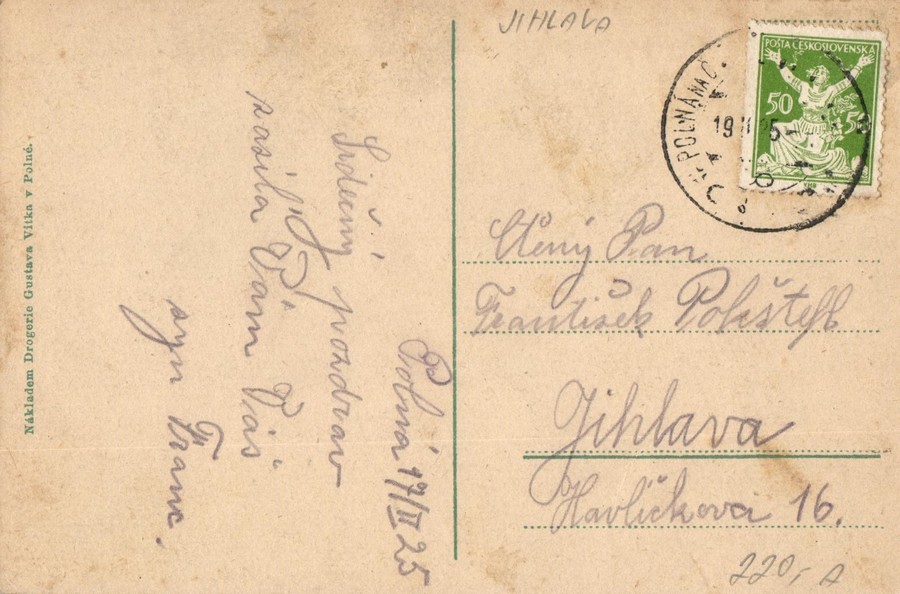 JIHLAVA
POŠTA ČESKOSLOVENSKÁ
50 50
POLNÁ NA Č.
Nákladem Drogerie Gustava Vítka v Polné.
Polná 17/II 25
Srdečný pozdrav
zasílá Vám Váš
syn Franc.
Ctěný Pan
František
Jihlava
Havlíčkova 16.
220,- A